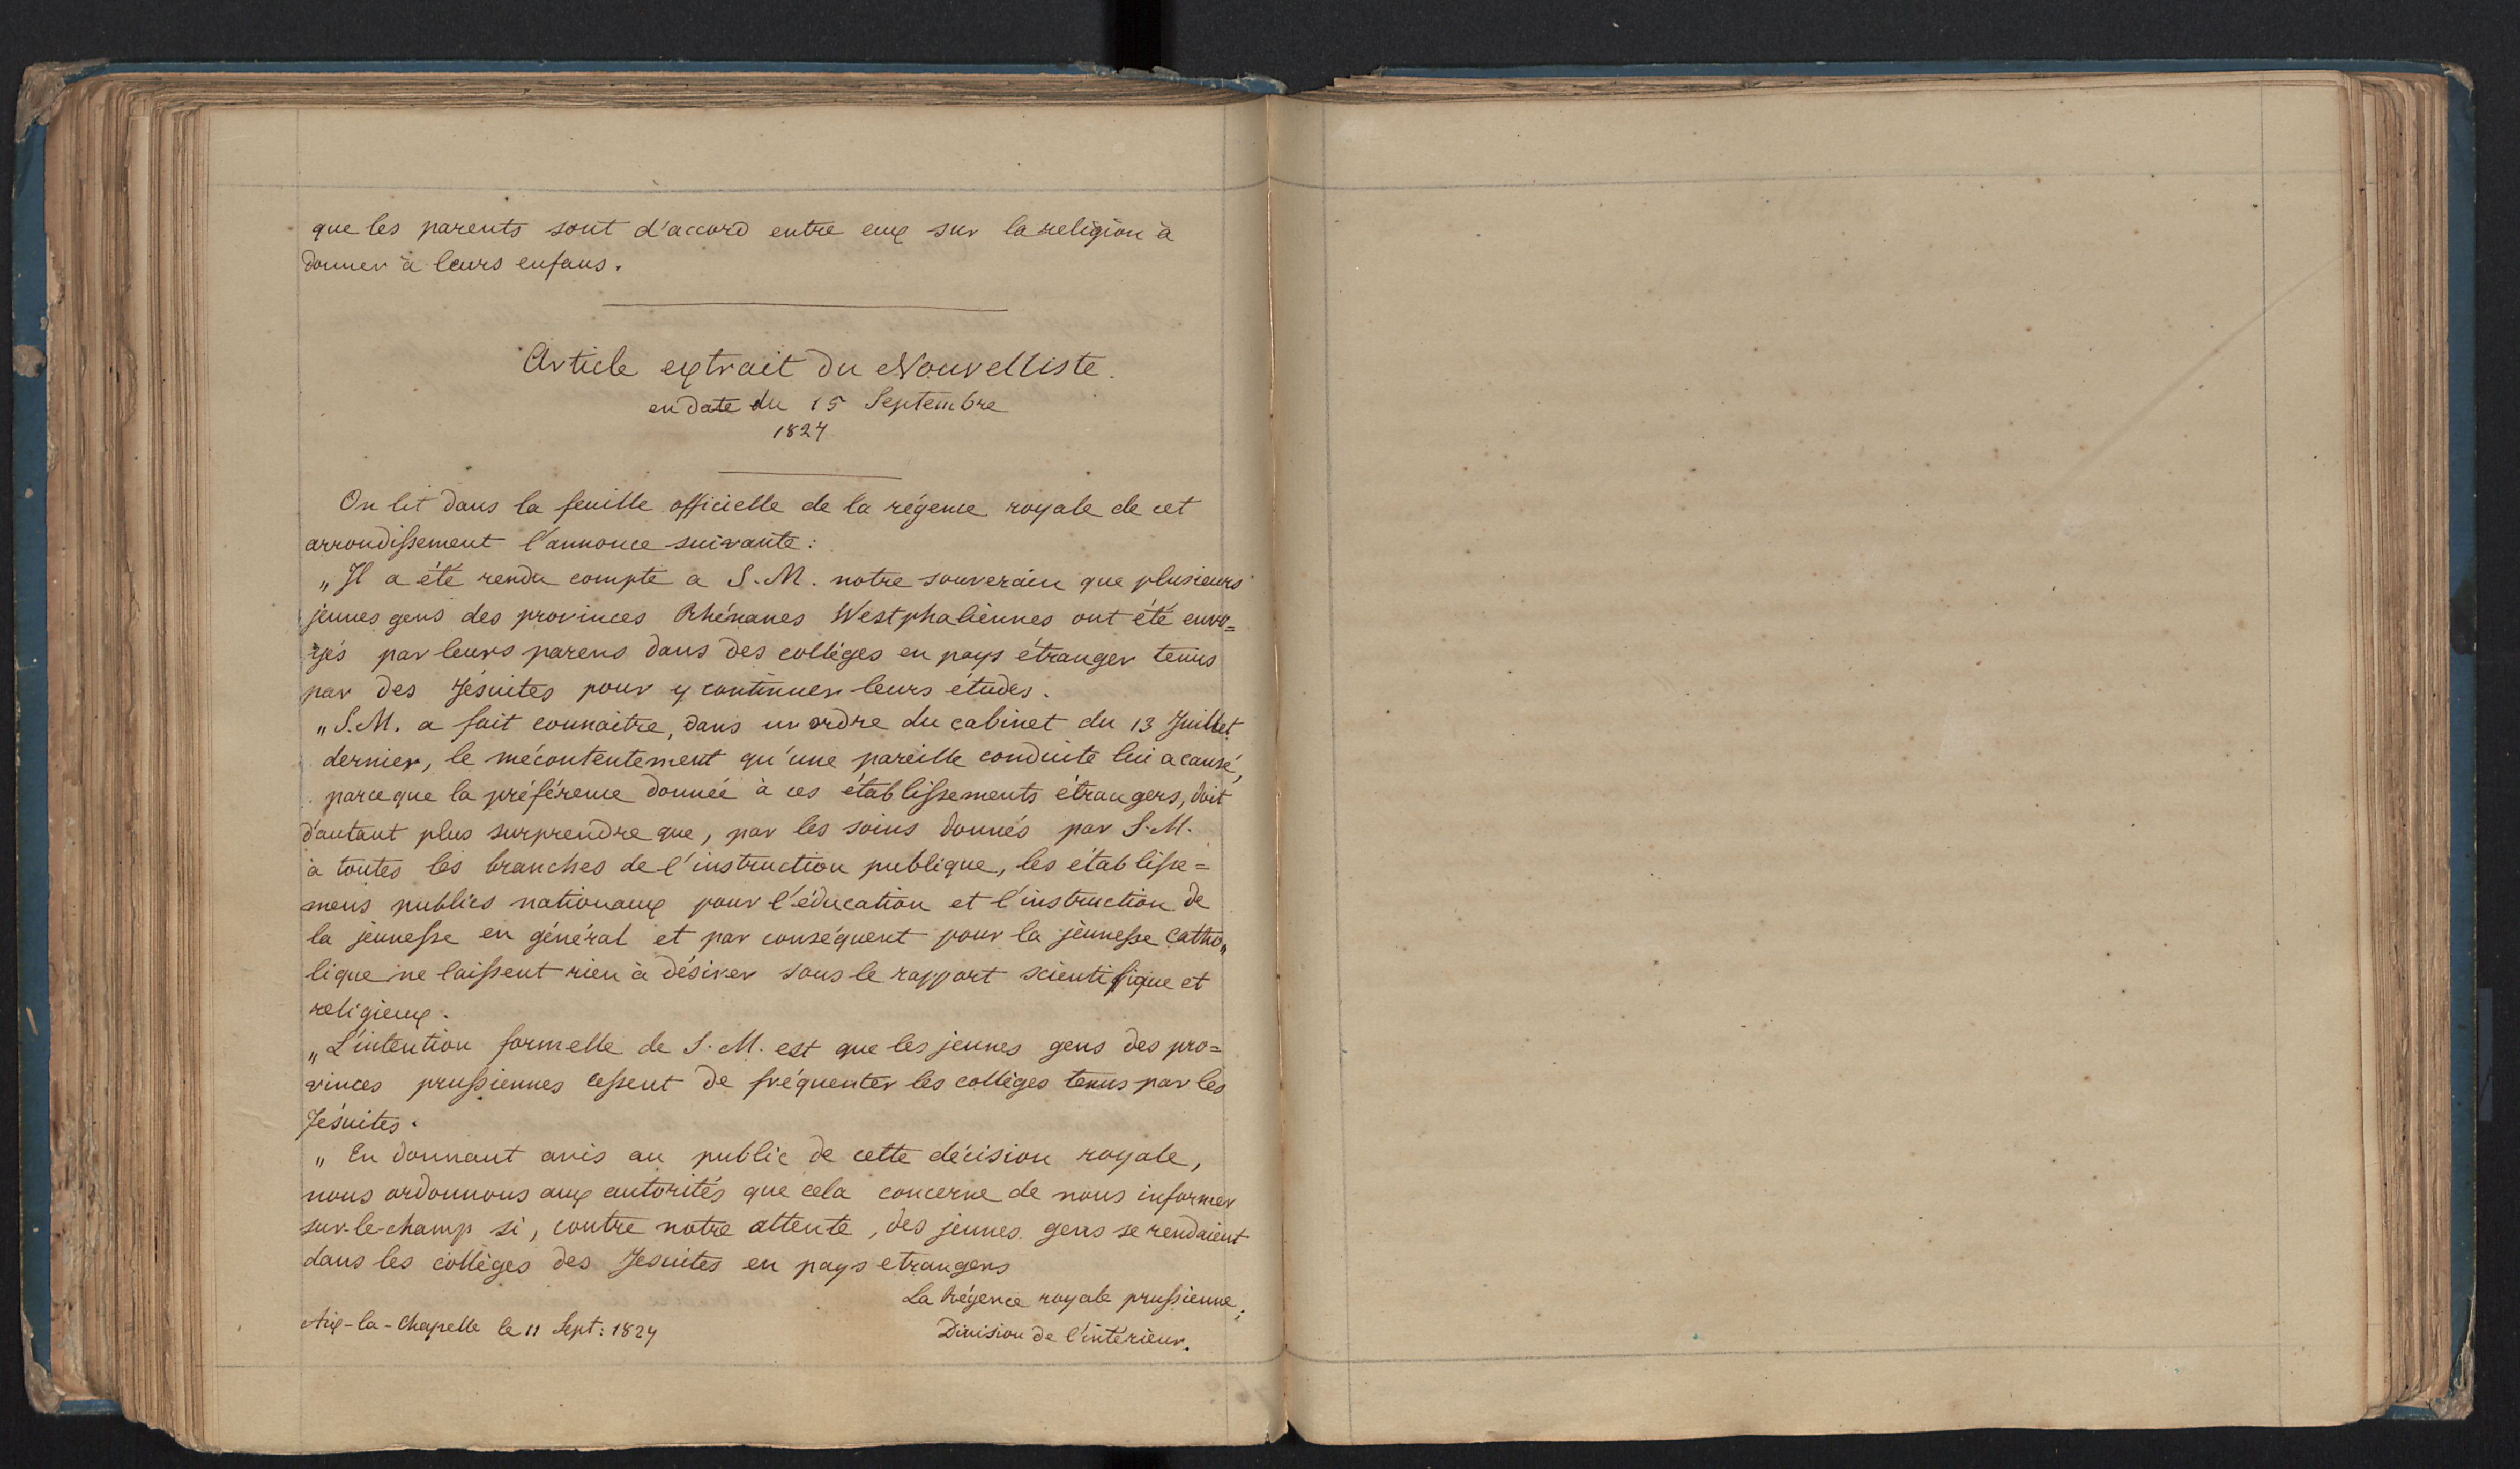 que les parents sont d'accord entre eux sur la religion à
donner à leurs enfans.
Article extrait du Nouvelliste.
en date du 15 Septembre
1827
On lit dans la feuille officielle de la régence royale de cet
arrondissement l'annonce suivante :
„Il a été rendu compte a S. M. notre souverain que plusieurs
jeunes gens des provinces Rhénanes Westphaliennes ont été envo=
yés par leurs parens dans des collèges en pays étranger tenus
par des Jésuites pour y continuer leurs études.
„S. M. a fait connaitre, dans un ordre du cabinet du 13 Juillet
dernier, le mécontentement qu'une pareille conduite lui a causé,
parceque la préférence donnée à ces établissements étrangers, doit
d'autant plus surprendre que, par les soins donnés par S. M.
à toutes les branches de l'instruction publique, les établisse=
mens publics nationaux pour l'éducation et l'instruction de
la jeunesse en général et par conséquent pour la jeunesse Catho„
lique ne laissent rien à désirer sous le rapport scientifique et
religieux.
„L'intention formelle de S. M. est que les jeunes gens des pro=
vinces prussiennes cessent de fréquenter les collèges tenus par les
Jésuites.
„ En donnant avis au public de cette décision royale,
nous ordonnons aux autorités que cela concerne de nous informer
sur-le-champ si, contre notre attente, des jeunes gens se rendaient
dans les collèges des Jesuites en pays etrangers
La Régence royale prussienne;
Aix-la-Chapelle le 11 Sept: 1827
Division de l'intérieur.